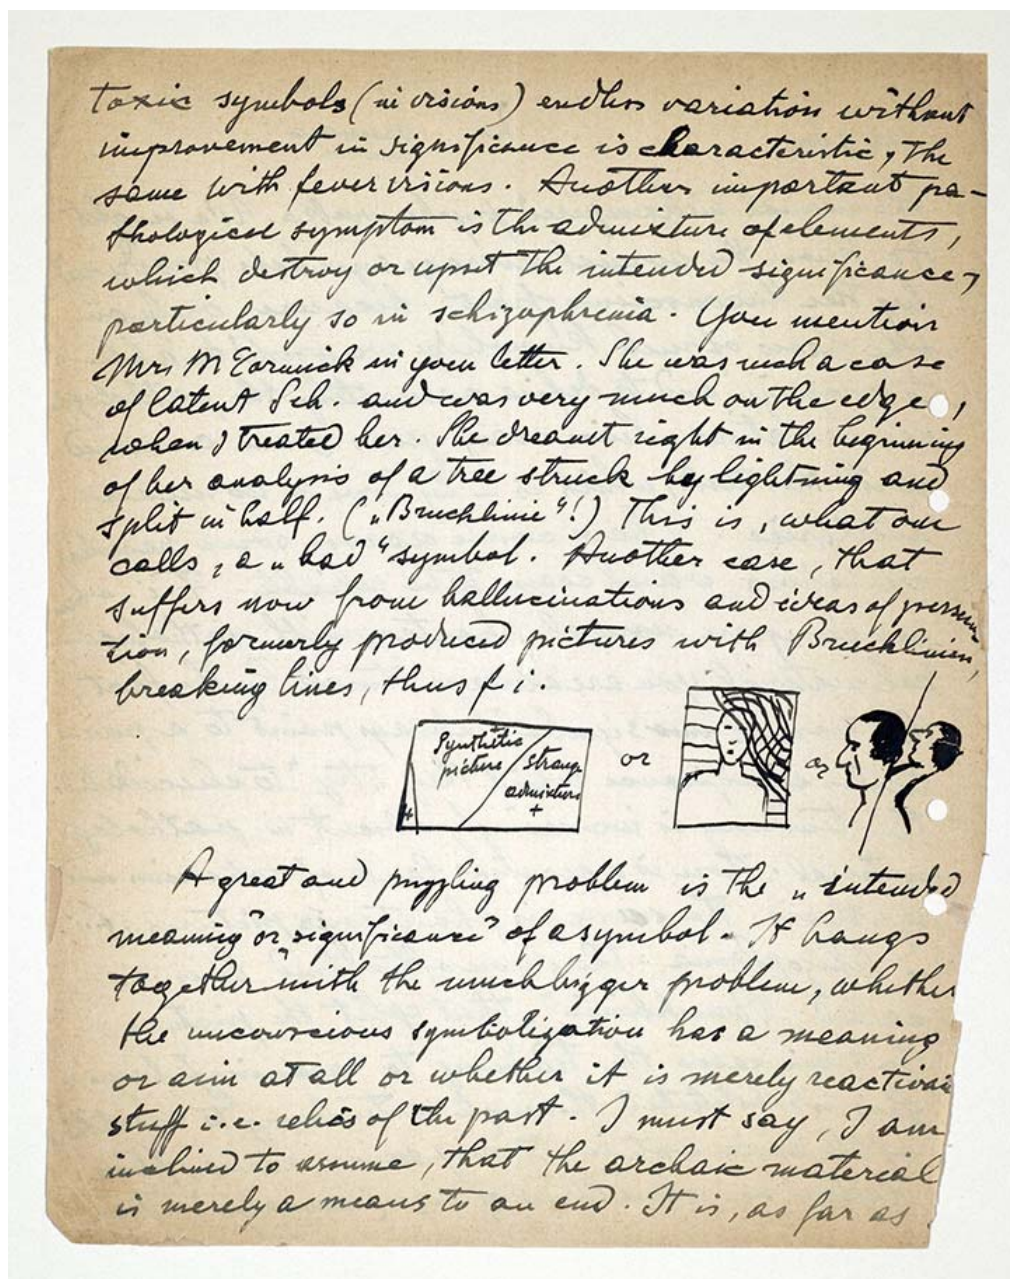 Toxic symbols (in visions) endless variation without
improvement in significance is characteristic, the
same with fever visions. Another important pa-
thological symptom is the admixture of elements,
which destroy or upset the intended significance,
particularly so in schizophrenia. You mention
Mrs McCormick in your letter. She was such a case
of latent Sch. and was very much on the edge,
when I treated her. She dreamt right in the beginning
of her analysis of a tree struck by lightning and
split in half. („Bruchlinie"!) This is, what one
calls, a „bad" symbol. Another case, that
suffers now from hallucinations and ideas of persecu-
tion, formerly produced pictures with Bruchlinien,
breaking lines, thus f i.
Synthetic
picture
strange
admixture
+
+
or
or
A great and puzzling problem is the „intended
meaning" or „significance" of a symbol. It hangs
together with the much bigger problem, whether
the unconscious symbolization has a meaning
or aim at all or whether it is merely reaction
stuff i.e. relics of the past. I must say, I am
inclined to assume, that the archaic material
is merely a means to an end. It is, as far as